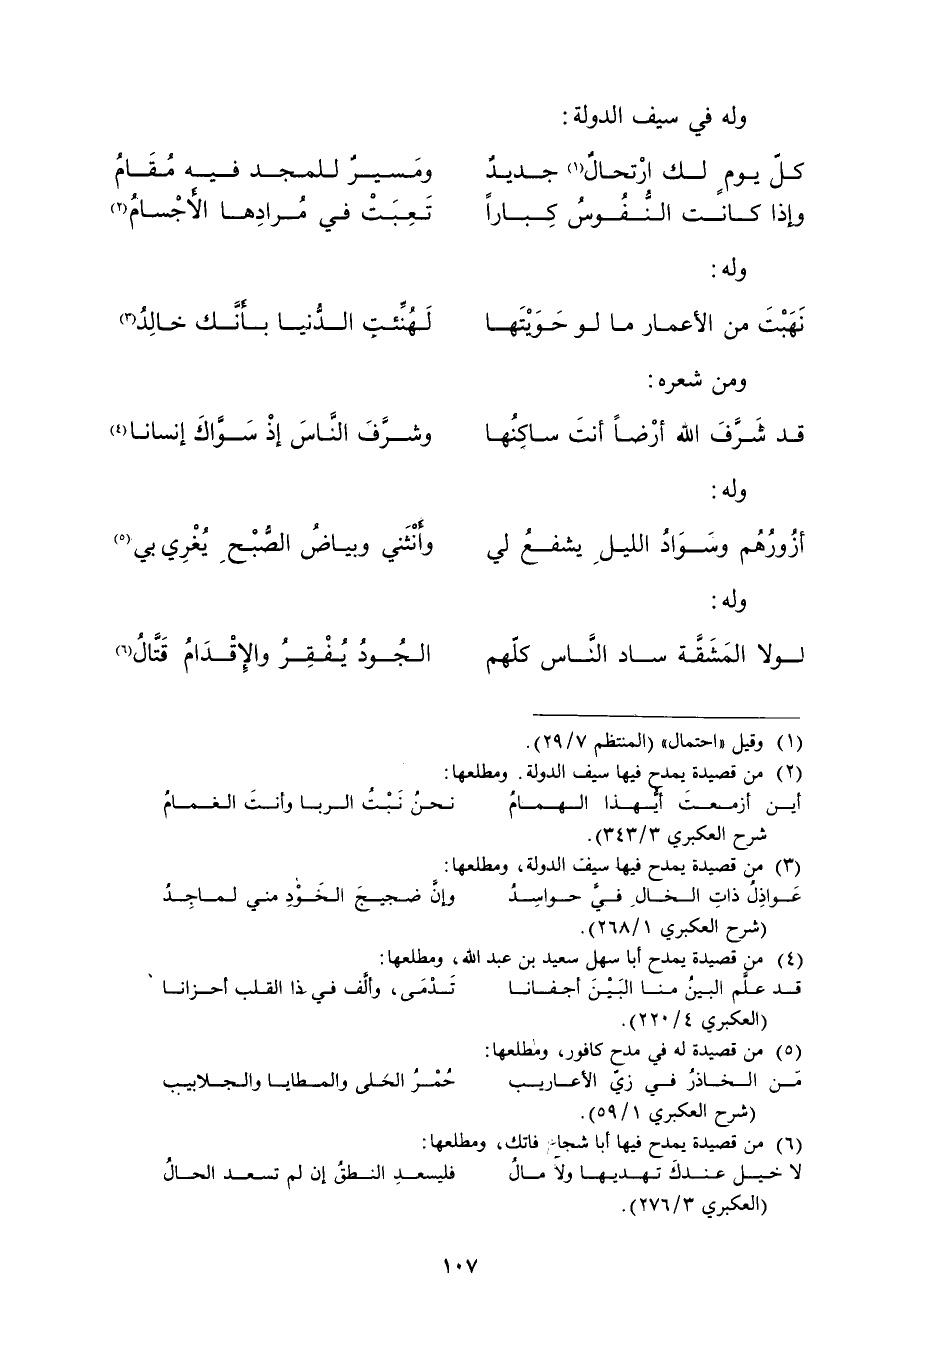 وله في سيف الدولة :
كلّ يومٍ لك ارْتحالٌ(١) جديدٌ ومَسيرٌ للمجد فيه مُقَامُ
وإذا كانت النُّفُوسُ كِباراً تَعِبَتْ في مُرادِها الأَجْسامُ(٢)
وله :
نَهَبْتَ من الأعمار ما لو حَوَيْتَها لَهُنِّئتِ الدُّنيا بأَنَّك خالِدُ(٣)
ومن شعره :
قد شَرَّفَ الله أرْضاً أنتَ ساكِنُها وشرَّفَ النَّاسَ إذْ سَوَّاكَ إنسانا(٤)
وله :
أزُورُهُم وسَوَادُ الليلِ يشفعُ لي وأَنْثَني وبياضُ الصُّبْحِ يُغْرِي بي(٥)
وله :
لولا المَشَقَّة ساد النَّاس كلّهم الجُودُ يُفْقِرُ والإِقْدَامُ قَتَّالُ(٦)
(١) وقيل «احتمال» (المنتظم ٢٩/٧).
(٢) من قصيدة يمدح فيها سيف الدولة. ومطلعها:
أين أزمعتَ أيُّهذا الهمامُ نحنُ نَبْتُ الربا وأنتَ الغمامُ
شرح العكبري ٣٤٣/٣).
(٣) من قصيدة يمدح فيها سيف الدولة، ومطلعها:
عَواذِلُ ذاتِ الخالِ فيَّ حواسِدُ وإنَّ ضجيجَ الخَوْدِ مني لماجِدُ
(شرح العكبري ٢٦٨/١).
(٤) من قصيدة يمدح أبا سهل سعيد بن عبد الله، ومطلعها:
قد علّم البينُ منا البَيْنَ أجفانا تَدْمَى، وألَّف في ذا القلب أحزانا
(العكبري ٢٢٠/٤).
(٥) من قصيدة له في مدح كافور، ومطلعها:
مَن الجآذرُ في زيّ الأعاريب حُمْرُ الحَلى والمطايا والجلابيب
(شرح العكبري ٥٩/١).
(٦) من قصيدة يمدح فيها أبا شجاع فاتك، ومطلعها:
لا خيل عندكَ تهديها ولا مالُ فليسعدِ النطقُ إن لم تسعد الحالُ
(العكبري ٢٧٦/٣).
١٠٧